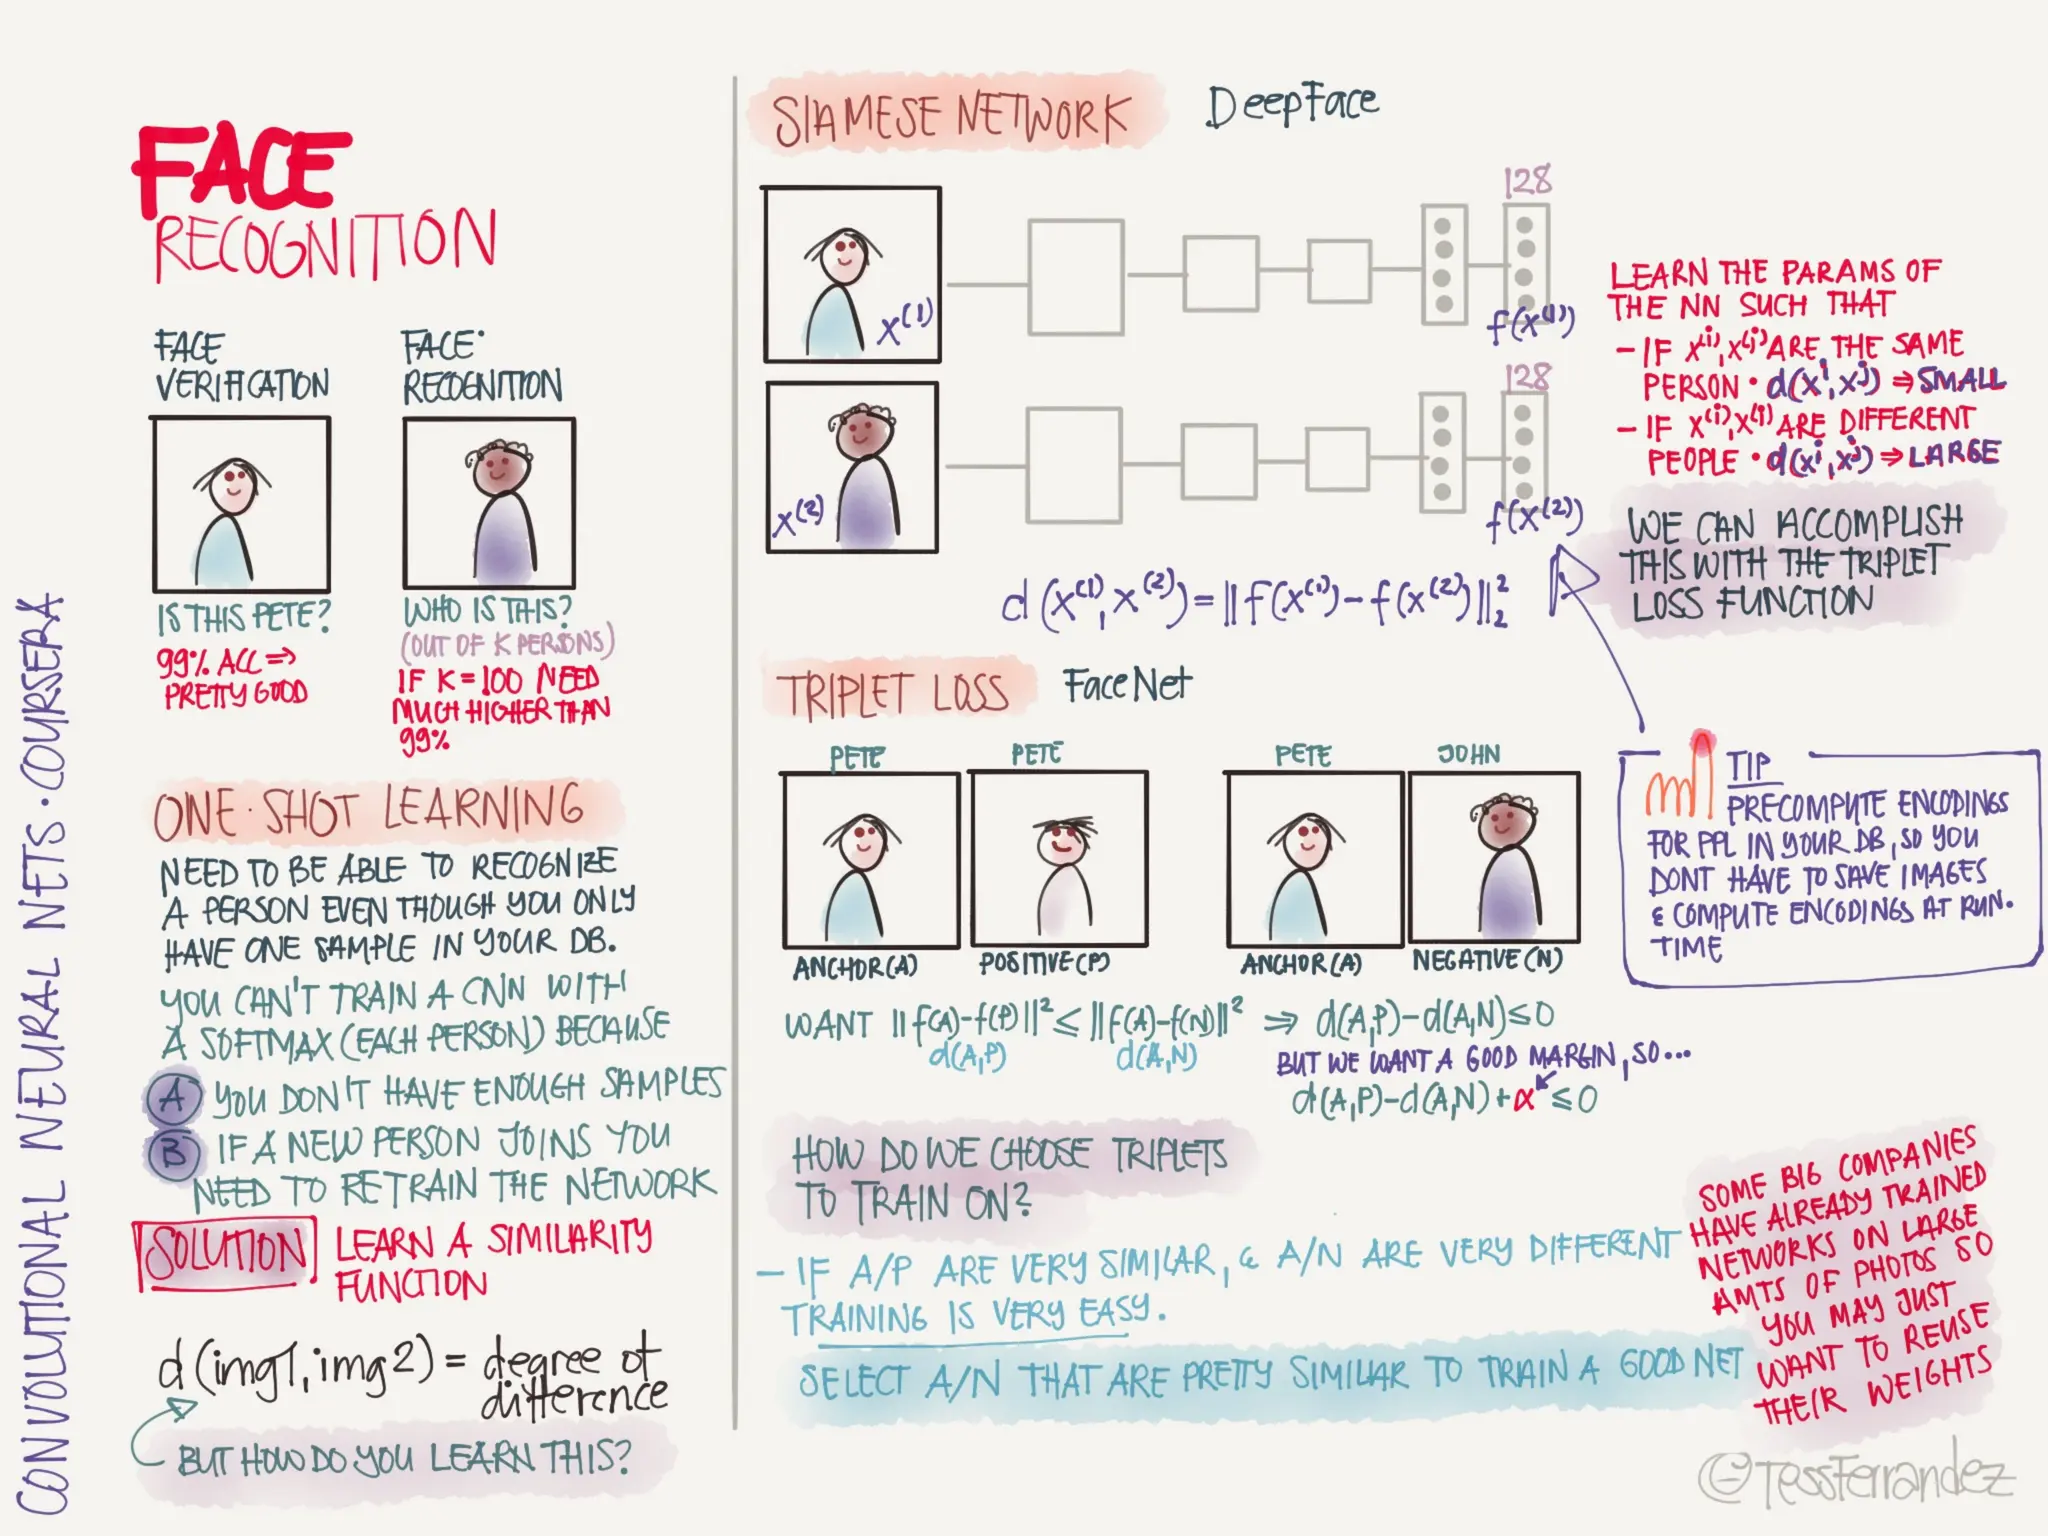 CONVOLUTIONAL NEURAL NETS · COURSERA
FACE
RECOGNITION
FACE
VERIFICATION
IS THIS PETE?
99% ACC ⇒
PRETTY GOOD
FACE
RECOGNITION
WHO IS THIS?
(OUT OF K PERSONS)
IF K = 100 NEED
MUCH HIGHER THAN
99%
ONE·SHOT LEARNING
NEED TO BE ABLE TO RECOGNIZE
A PERSON EVEN THOUGH YOU ONLY
HAVE ONE SAMPLE IN YOUR DB.
YOU CAN'T TRAIN A CNN WITH
A SOFTMAX (EACH PERSON) BECAUSE
A YOU DON'T HAVE ENOUGH SAMPLES
B IF A NEW PERSON JOINS YOU
NEED TO RETRAIN THE NETWORK
SOLUTION LEARN A SIMILARITY
FUNCTION
d(img1, img2) = degree of
difference
BUT HOW DO YOU LEARN THIS?
SIAMESE NETWORK DeepFace
128
x⁽¹⁾
f(x⁽¹⁾)
128
x⁽²⁾
f(x⁽²⁾)
d(x⁽¹⁾, x⁽²⁾) = ||f(x⁽¹⁾) - f(x⁽²⁾)||₂²
LEARN THE PARAMS OF
THE NN SUCH THAT
- IF x⁽ⁱ⁾, x⁽ʲ⁾ ARE THE SAME
PERSON · d(xⁱ, xʲ) ⇒ SMALL
- IF x⁽ⁱ⁾, x⁽ʲ⁾ ARE DIFFERENT
PEOPLE · d(xⁱ, xʲ) ⇒ LARGE
WE CAN ACCOMPLISH
THIS WITH THE TRIPLET
LOSS FUNCTION
TIP
PRECOMPUTE ENCODINGS
FOR PPL IN YOUR DB, SO YOU
DONT HAVE TO SAVE IMAGES
& COMPUTE ENCODINGS AT RUN·
TIME
TRIPLET LOSS FaceNet
PETE PETE PETE JOHN
ANCHOR (A) POSITIVE (P) ANCHOR (A) NEGATIVE (N)
WANT ||f(A)-f(P)||² ≤ ||f(A)-f(N)||² ⇒ d(A,P)-d(A,N) ≤ 0
d(A,P) d(A,N)
BUT WE WANT A GOOD MARGIN, SO...
d(A,P)-d(A,N)+α ≤ 0
HOW DO WE CHOOSE TRIPLETS
TO TRAIN ON?
- IF A/P ARE VERY SIMILAR, & A/N ARE VERY DIFFERENT
TRAINING IS VERY EASY.
SELECT A/N THAT ARE PRETTY SIMILAR TO TRAIN A GOOD NET
SOME BIG COMPANIES
HAVE ALREADY TRAINED
NETWORKS ON LARGE
AMTS OF PHOTOS SO
YOU MAY JUST
WANT TO REUSE
THEIR WEIGHTS
@TessFerrandez